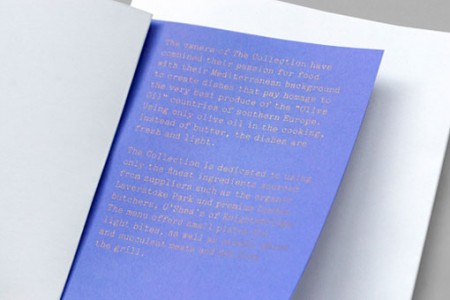 The owners of The Collection have
combined their passion for food
with their Mediterranean background
to create dishes that pay homage to
the very best produce of the "Olive
Oil" countries of southern Europe.
Using only olive oil in the cooking,
instead of butter, the dishes are
fresh and light.
The Collection is dedicated to using
only the finest ingredients sourced
from suppliers such as the organic
Laverstoke Park and premium
butchers, O'Shea's of Knightsbridge.
The menu offers small plates
light bites, as well as
and succulent meats and from
the grill.